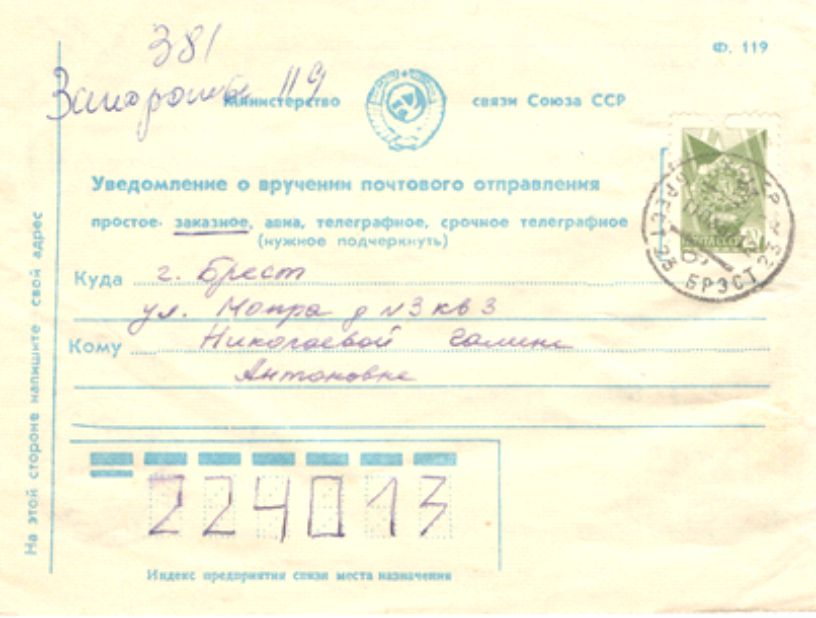 381
Ф. 119
Запорожье 119
Министерство связи Союза ССР
Уведомление о вручении почтового отправления
простое, заказное, авиа, телеграфное, срочное телеграфное
(нужное подчеркнуть)
Куда г. Брест
ул. Мопра д N3 кв 3
Кому Николаевой Галине
Антоновне
224013
Индекс предприятия связи места назначения
На этой стороне напишите свой адрес
ПОЧТА СССР
БРЕСТ 25
БРЭСТ 23